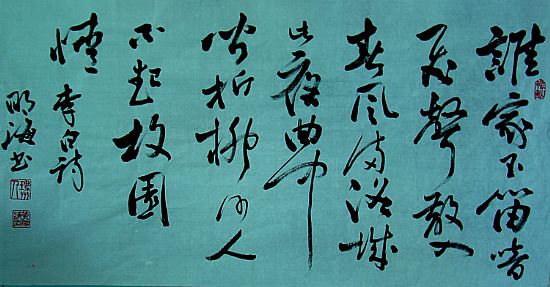 誰家玉笛暗
飞聲散入
春风满洛城
此夜曲中
闻折柳何人
不起故園
情 李白詩
明海书